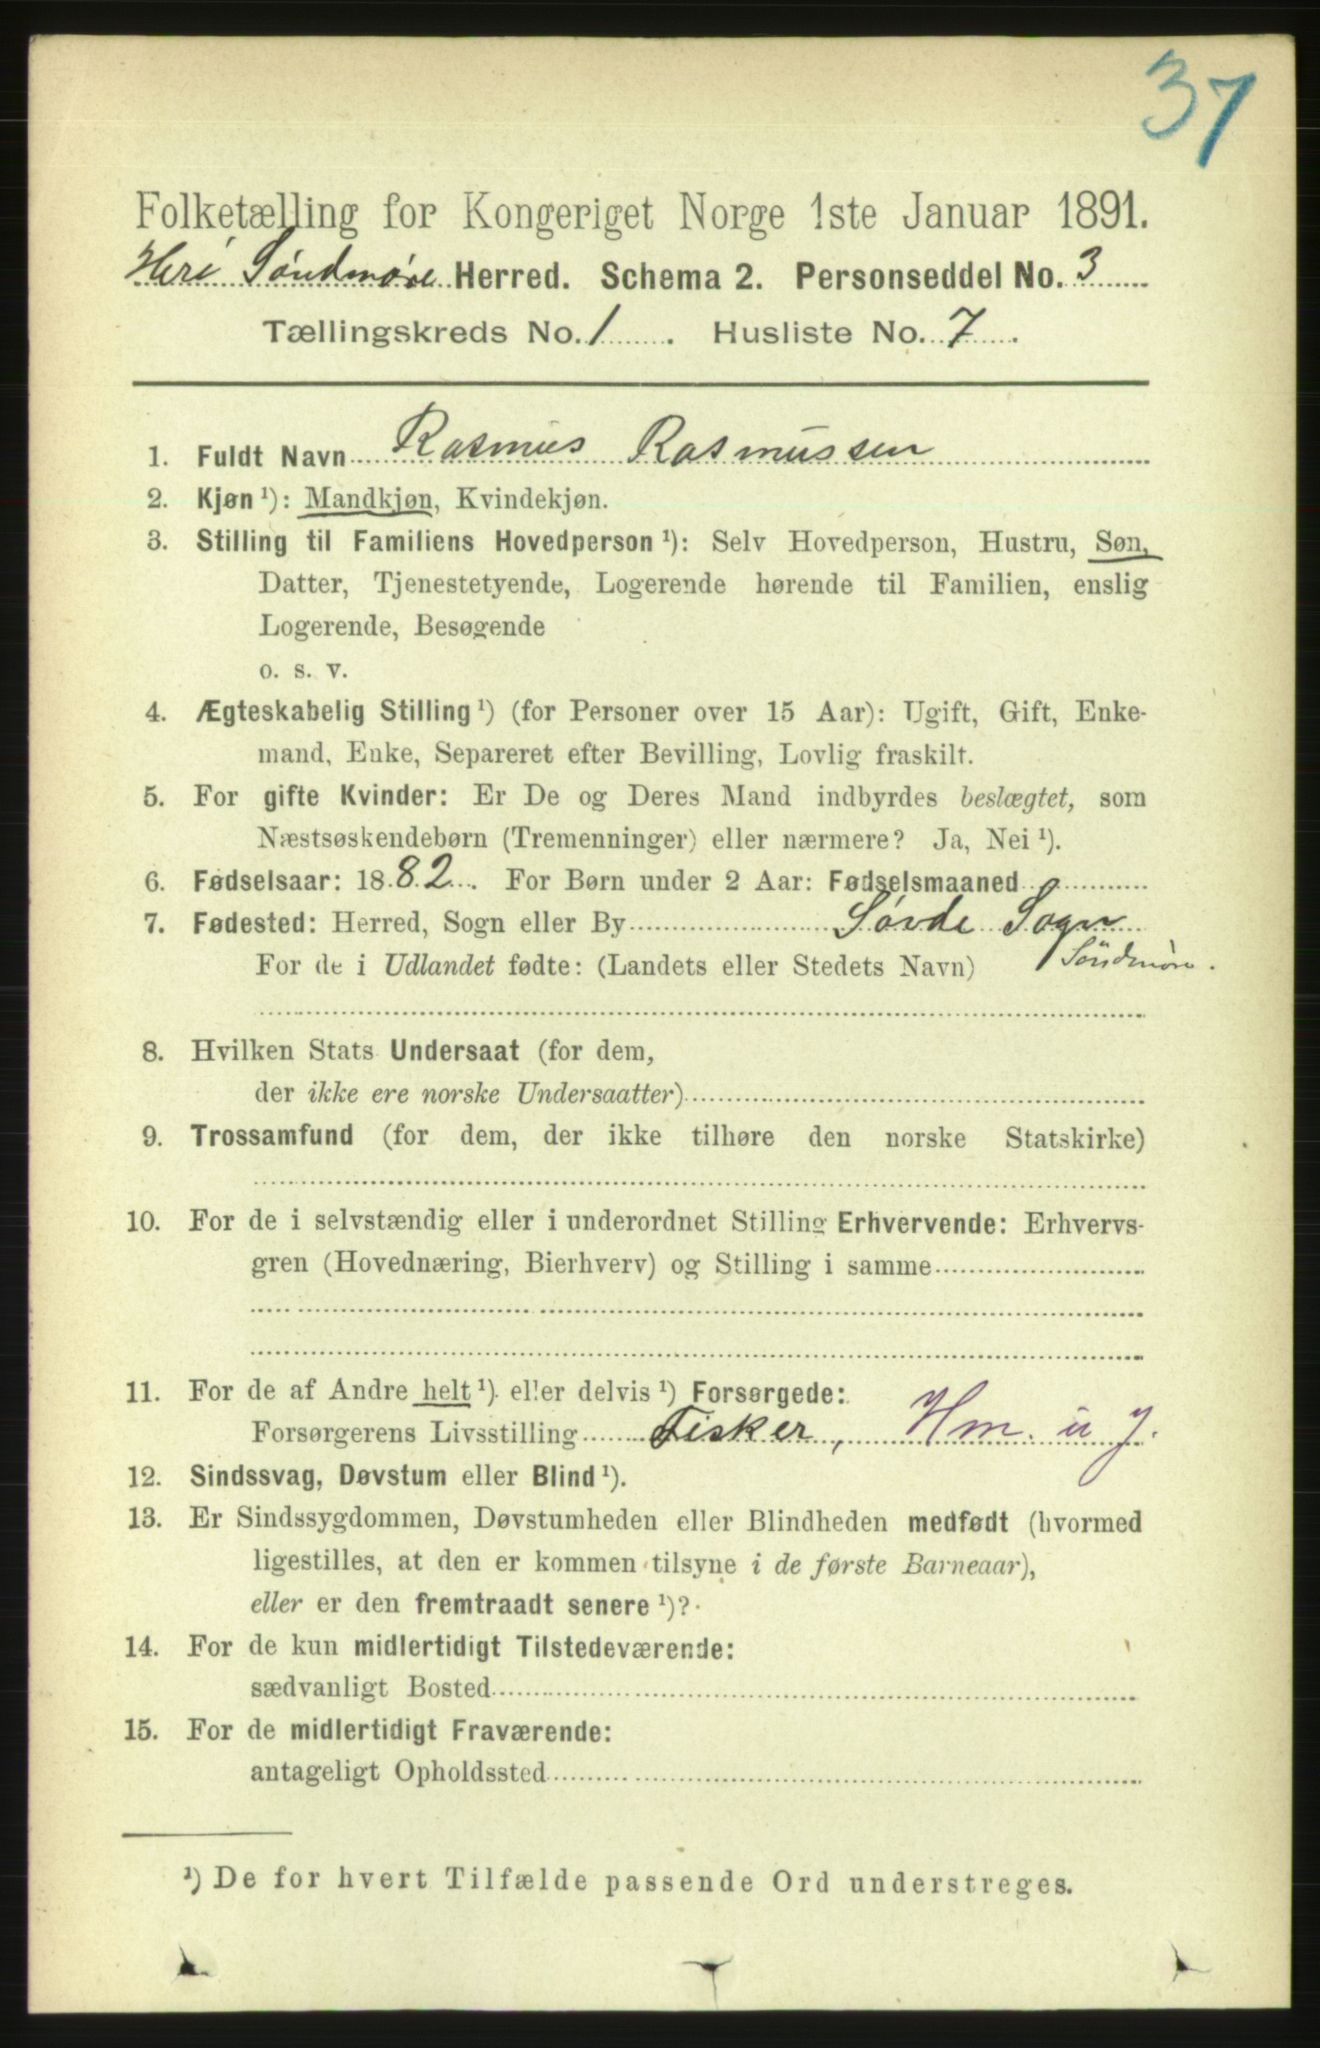 37
Folketælling for Kongeriget Norge 1ste Januar 1891.
Herö Söndmøre Herred. Schema 2. Personseddel No. 3
Tællingskreds No. 1. Husliste No. 7.
1. Fuldt Navn Rasmus Rasmussen
2. Kjøn ¹): Mandkjøn, Kvindekjøn.
3. Stilling til Familiens Hovedperson ¹): Selv Hovedperson, Hustru, Søn,
Datter, Tjenestetyende, Logerende hørende til Familien, enslig
Logerende, Besøgende
o. s. v.
4. Ægteskabelig Stilling ¹) (for Personer over 15 Aar): Ugift, Gift, Enke-
mand, Enke, Separeret efter Bevilling, Lovlig fraskilt.
5. For gifte Kvinder: Er De og Deres Mand indbyrdes beslægtet, som
Næstsøskendebørn (Tremenninger) eller nærmere? Ja, Nei ¹).
6. Fødselsaar: 1882. For Børn under 2 Aar: Fødselsmaaned
7. Fødested: Herred, Sogn eller By Sövde Sogn
For de i Udlandet fødte: (Landets eller Stedets Navn) Söndmøre.
8. Hvilken Stats Undersaat (for dem,
der ikke ere norske Undersaatter)
9. Trossamfund (for dem, der ikke tilhøre den norske Statskirke)
10. For de i selvstændig eller i underordnet Stilling Erhvervende: Erhvervs-
gren (Hovednæring, Bierhverv) og Stilling i samme
11. For de af Andre helt ¹) eller delvis ¹) Forsørgede:
Forsørgerens Livsstilling Fisker, Hm. u J.
12. Sindssvag, Døvstum eller Blind ¹).
13. Er Sindssygdommen, Døvstumheden eller Blindheden medfødt (hvormed
ligestilles, at den er kommen tilsyne i de første Barneaar),
eller er den fremtraadt senere ¹)?
14. For de kun midlertidigt Tilstedeværende:
sædvanligt Bosted
15. For de midlertidigt Fraværende:
antageligt Opholdssted
¹) De for hvert Tilfælde passende Ord understreges.